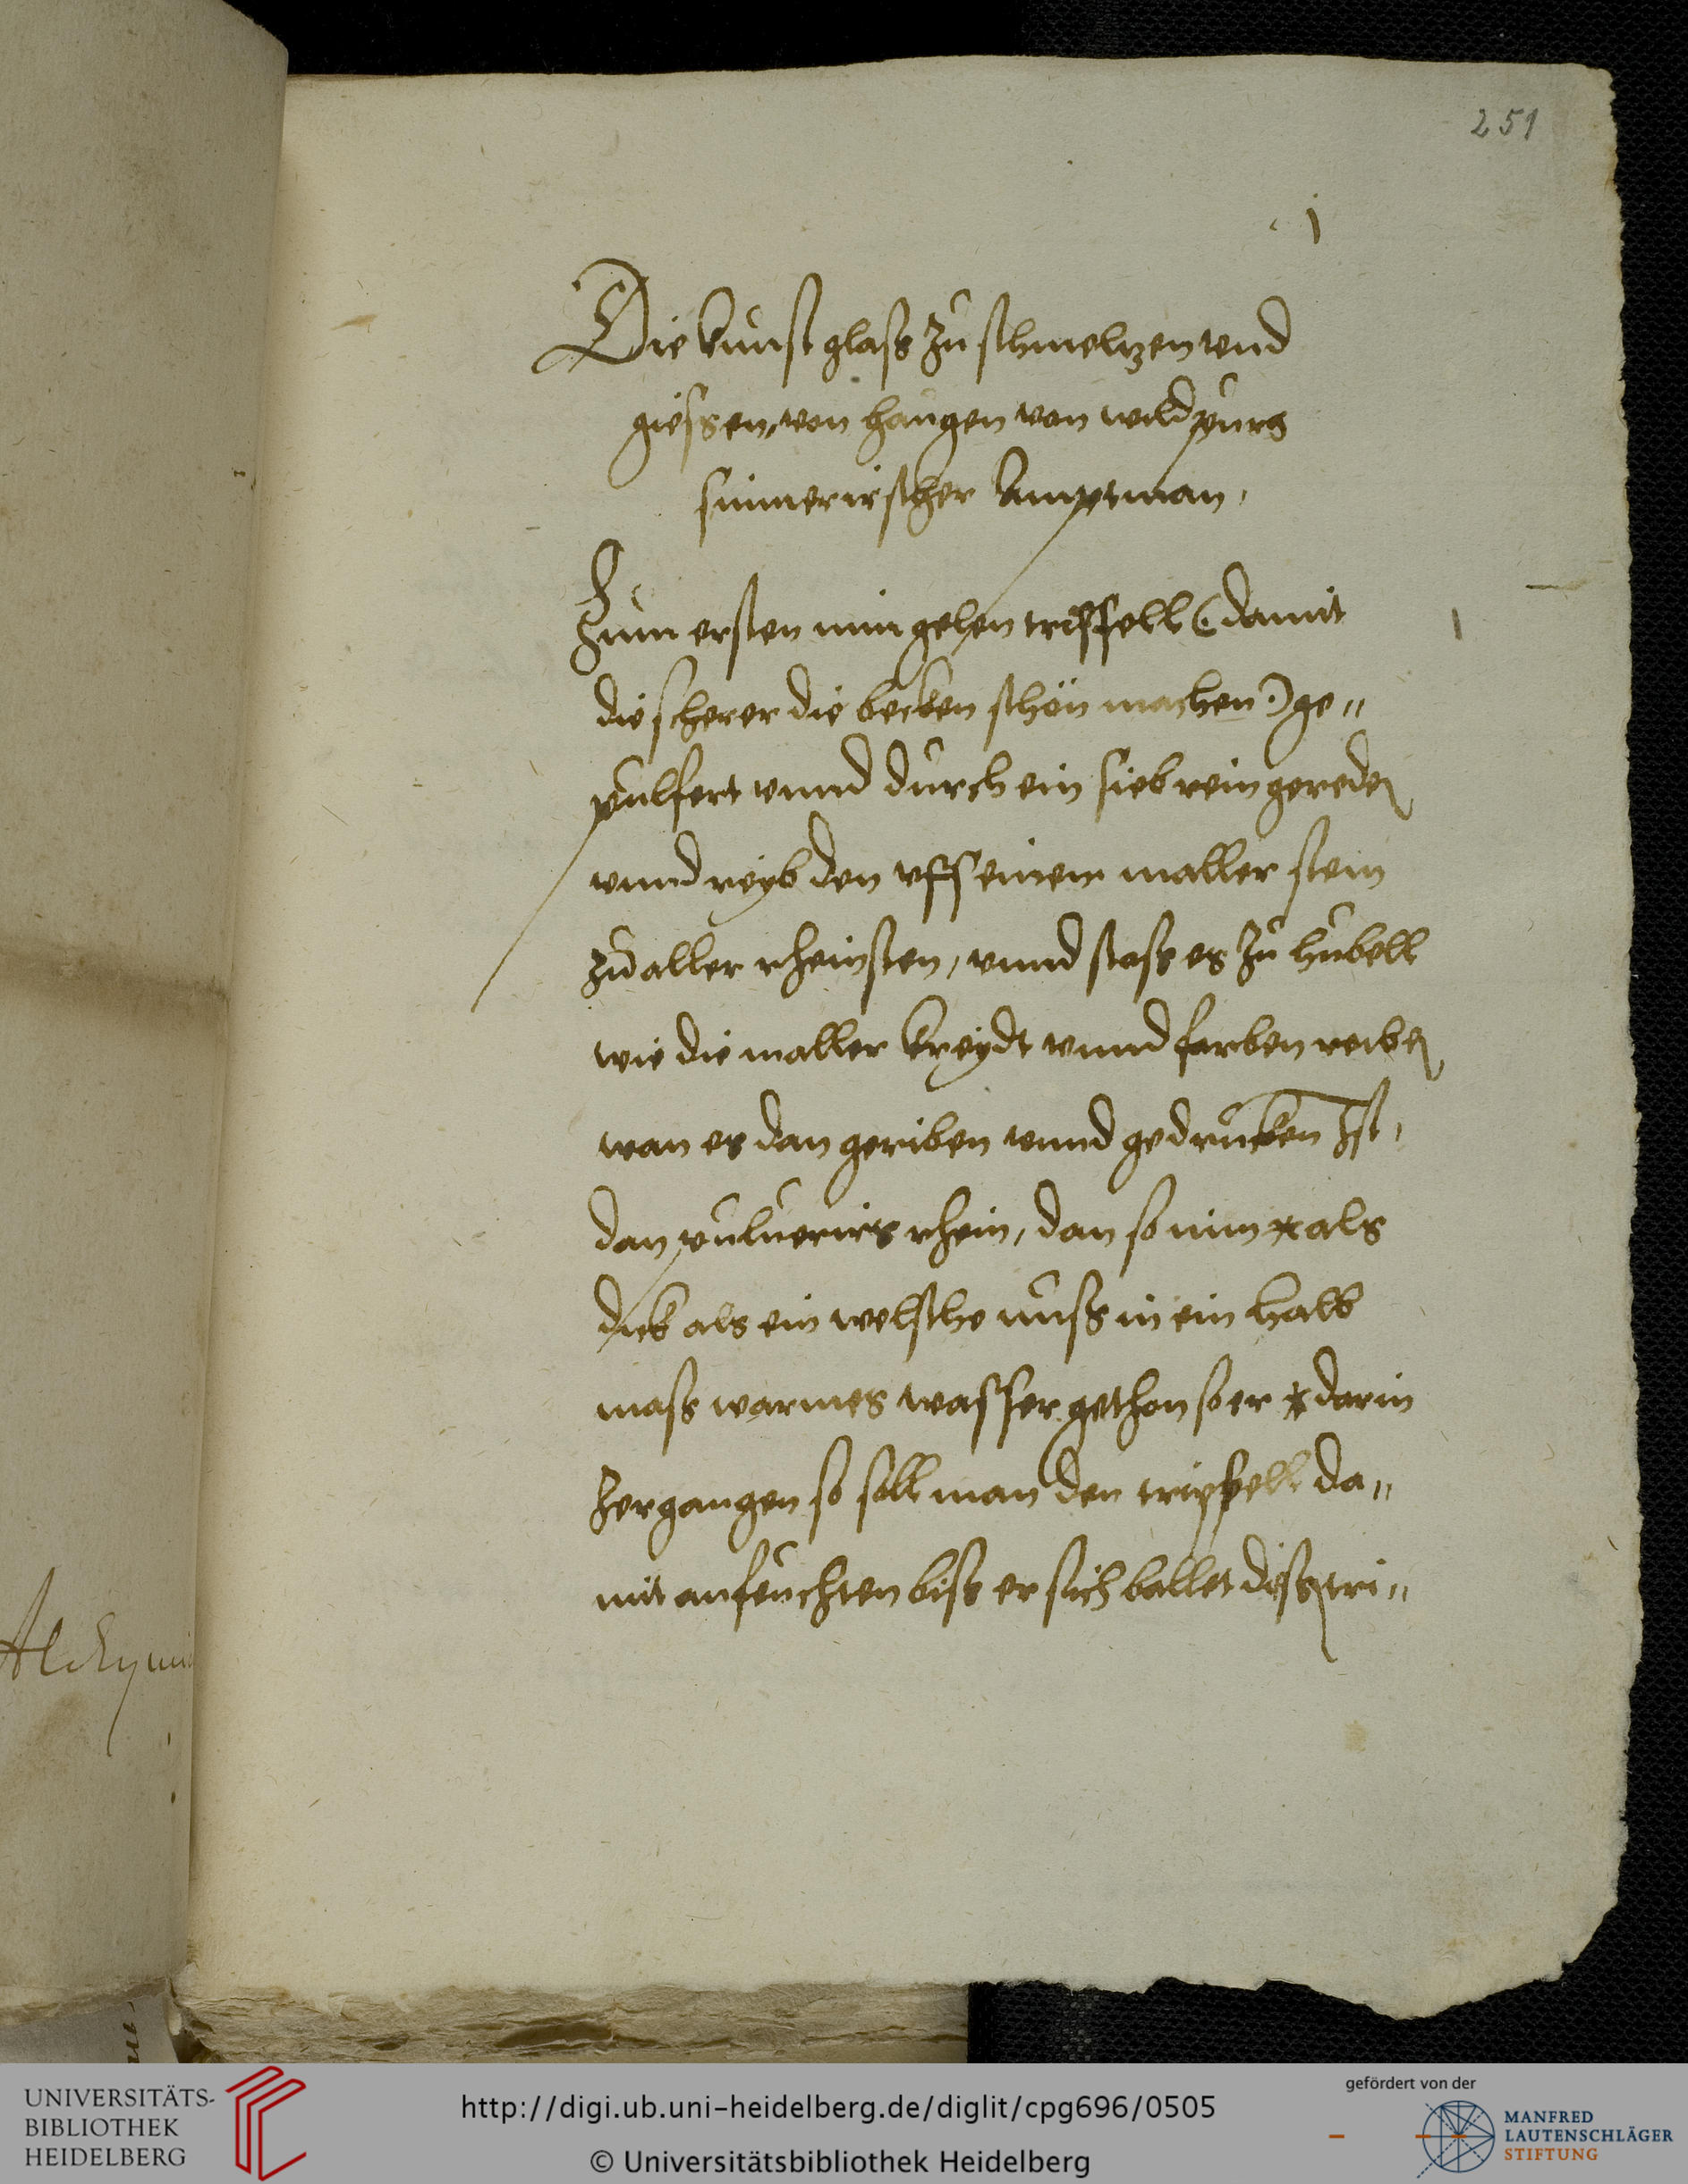 251
j
Die kunst glass zu schmeltzen vnd
giessen, von haugen von wildpurg
simmerirscher Amptman,
Zum ersten nim gelen trippell (damit
die scherer die becken schön machen) ge"
pulfert vnnd durch ein sieb rein gereden
vnnd reyb den vff einem maller stein
zu aller rheinsten, vnnd stoss es zu hubell
wie die maller kreydt vnnd farben reiben
wan es dan geriben vnnd gedrucken Ist,
dan puluerirs rhein, dan so nim als
dick als ein welsche nuss in ein halb
mass warmes wasser gethon so er darin
zergangen so soll man den trippell da"
mit anfeuchten biss er sich ballet diss tri"
Alchymi
UNIVERSITÄTS-
BIBLIOTHEK
HEIDELBERG
http://digi.ub.uni-heidelberg.de/diglit/cpg696/0505
© Universitätsbibliothek Heidelberg
gefördert von der
MANFRED
LAUTENSCHLÄGER
STIFTUNG